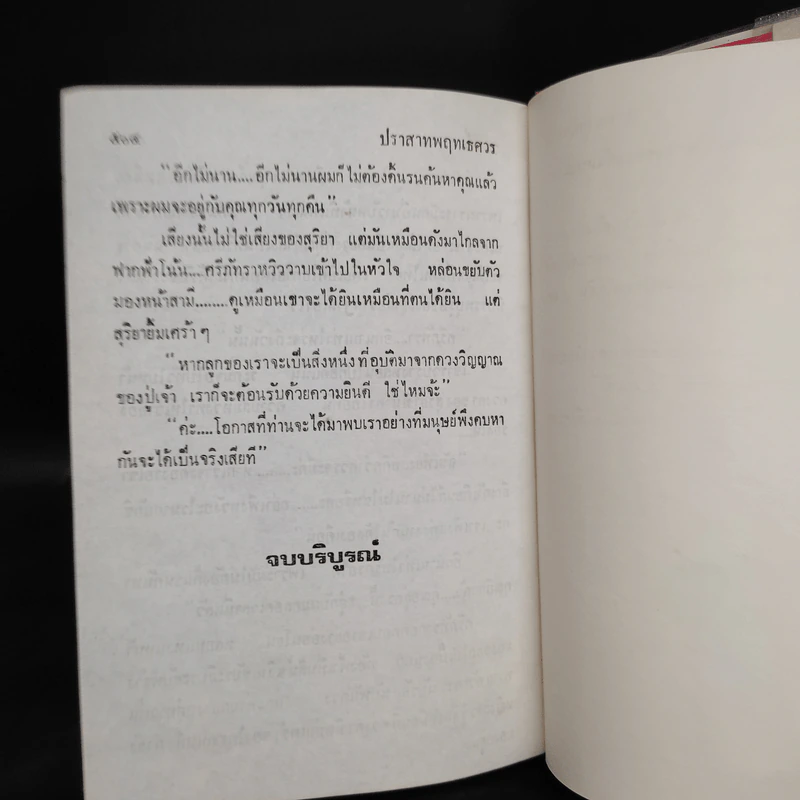 ๕๓๔ ปราสาทพฤทเธศวร
"อีกไม่นาน....อีกไม่นานผมก็ไม่ต้องดิ้นรนค้นหาคุณแล้ว
เพราะผมจะอยู่กับคุณทุกวันทุกคืน"
เสียงนั้นไม่ใช่เสียงของสุริยา แต่มันเหมือนดังมาไกลจาก
ฟากฟ้าโน้น....ศรีภัทราหวิววาบเข้าไปในหัวใจ หล่อนขยับตัว
มองหน้าสามี.......ดูเหมือนเขาจะได้ยินเหมือนที่ตนได้ยิน แต่
สุริยายิ้มเศร้าๆ
"หากลูกของเราจะเป็นสิ่งหนึ่งที่อุบัติมาจากดวงวิญญาณ
ของปู่เจ้า เราก็จะต้อนรับด้วยความยินดี ใช่ไหมจ้ะ"
"ค่ะ....โอกาสที่ท่านจะได้มาพบเราอย่างที่มนุษย์พึงคบหา
กันจะได้เป็นจริงเสียที"
จบบริบูรณ์